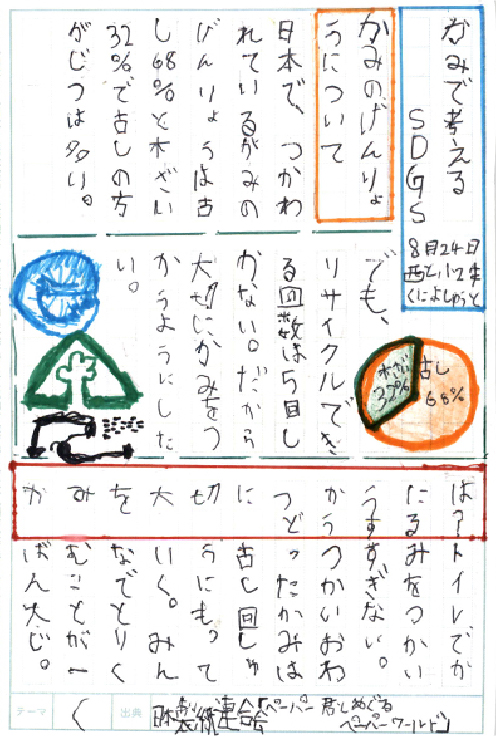 かみで考える
SDGS
8月24日
小2年
くによししゅうと
かみのげんりょ
うについて
日本で、つかわ
れているがみの
げんりょうは古
し68%と木ざい
32%で古しの方
がじつは多い。
でも、
リサイクルでき
る回数は5回し
かない。だから
大切にかみをつ
かうようにした
い。
古し
68%
木ざい
32%
かみを大切につかうには？
トイレでか
みをつかい
すぎない。
つかいおわ
ったかみは
古し回しゅ
うにもって
いく。みん
なでとりく
むことが一
ばん大じ。
テーマ
く
出典
日本製紙連合会「ペーパー
めぐる
ペーパーワールド」